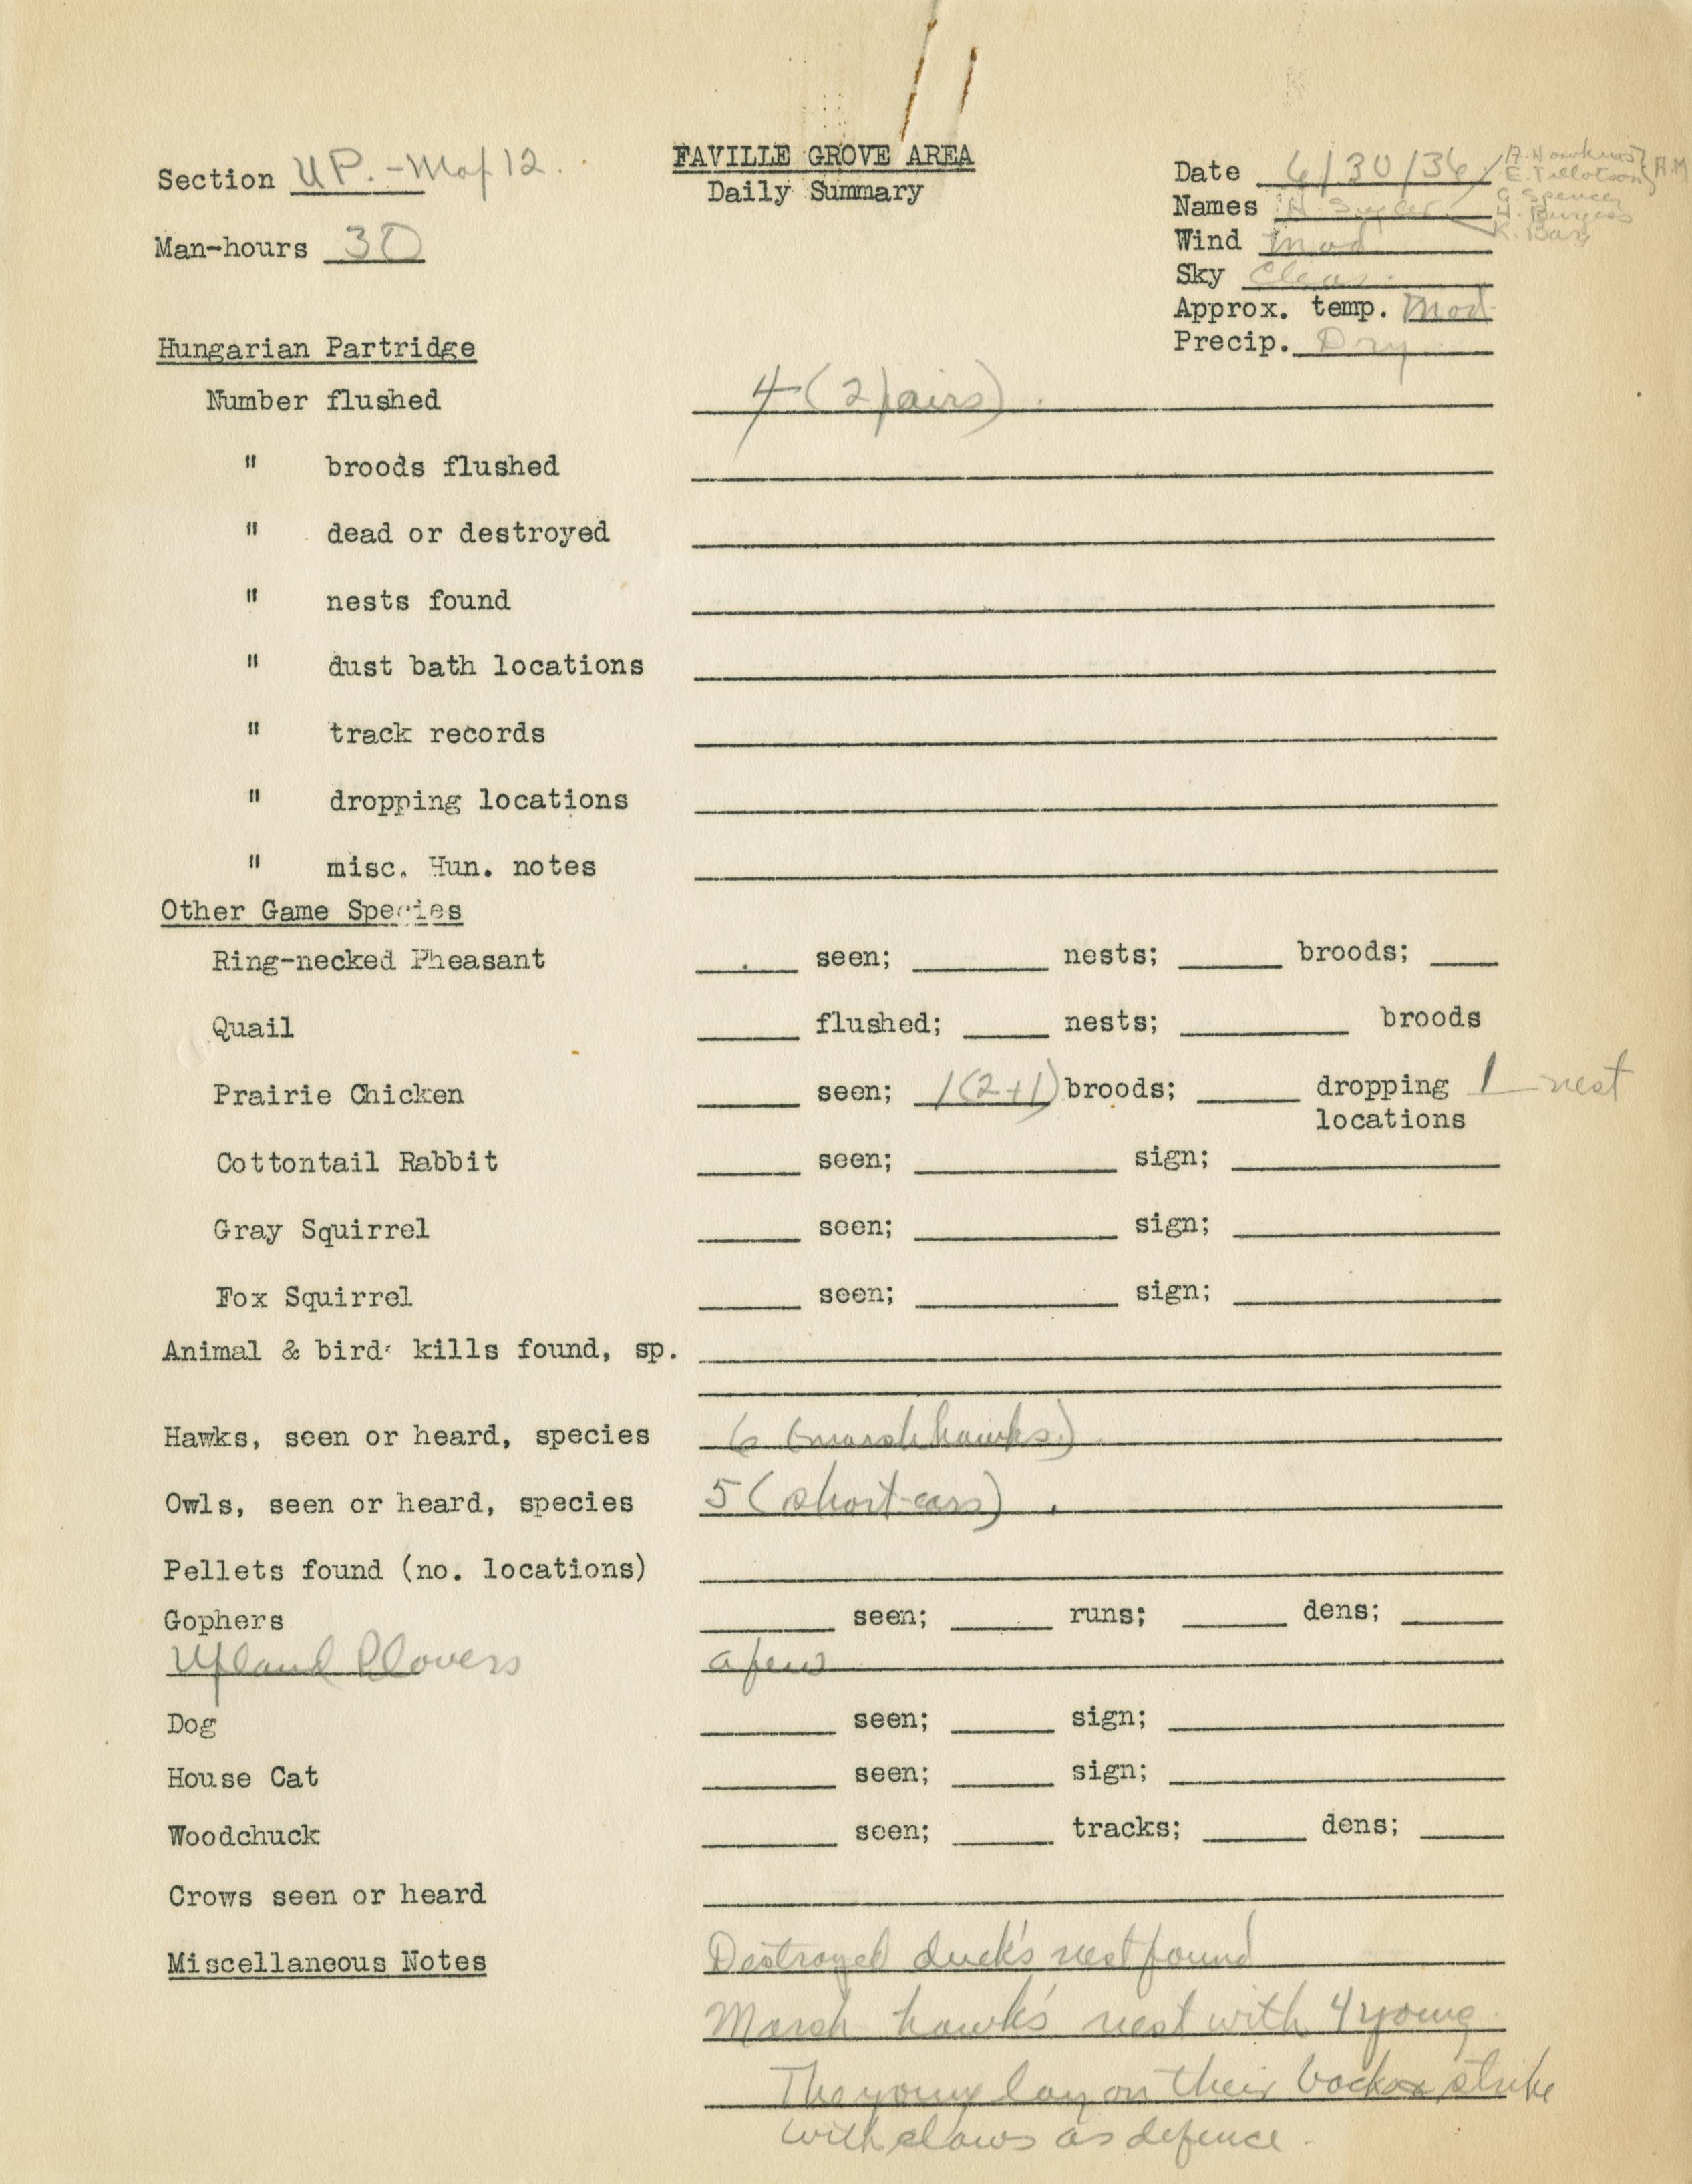 FAVILLE GROVE AREA
Daily Summary
Section U.P. - Map 12.
Man-hours 30
Date 6/30/36
A. Hawkins
E. Tillotson A.M
G. Spencer
H. Burgess
K. Bar
Names H.
Wind Mod
Sky Clear.
Approx. temp. Mod
Precip. Dry
Hungarian Partridge
Number flushed 4 (2 pairs).
" broods flushed
" dead or destroyed
" nests found
" dust bath locations
" track records
" dropping locations
" misc. Hun. notes
Other Game Species
Ring-necked Pheasant seen; nests; broods;
Quail flushed; nests; broods
Prairie Chicken seen; 1(2+1) broods; dropping 1 nest
locations
Cottontail Rabbit seen; sign;
Gray Squirrel seen; sign;
Fox Squirrel seen; sign;
Animal & bird kills found, sp.
Hawks, seen or heard, species 6 (marsh hawks)
Owls, seen or heard, species 5 (short-ears)
Pellets found (no. locations)
Gophers seen; runs; dens;
Upland Plovers a few
Dog seen; sign;
House Cat seen; sign;
Woodchuck seen; tracks; dens;
Crows seen or heard
Miscellaneous Notes Destroyed duck's nest found
Marsh hawk's nest with 4 young.
The young lay on their backs strike
with claws as defence.